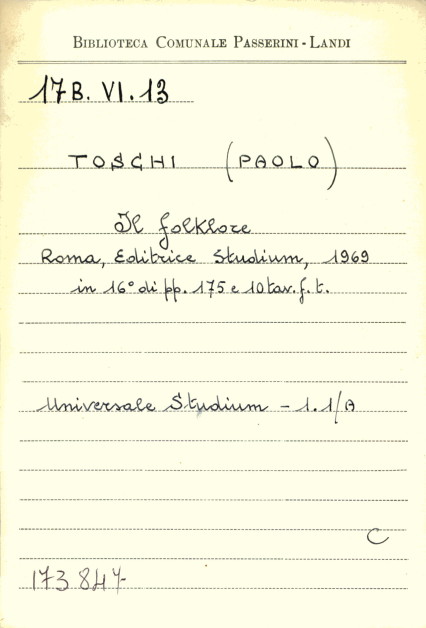 BIBLIOTECA COMUNALE PASSERINI - LANDI
17B. VI. 13
TOSCHI (PAOLO)
Il folklore
Roma, Editrice Studium, 1969
in 16° di pp. 175 e 10 tav. f. t.
Universale Studium - 1. 1/A
C
173847